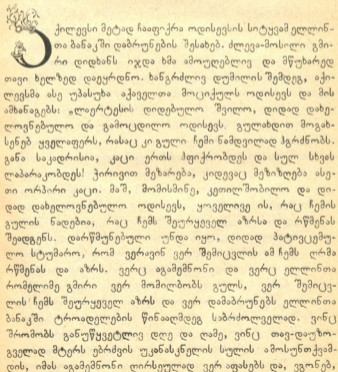 ქილევსი მეტად ჩააფიქრა ოდისევსის სიტყვამ ელლინ-
თა ბანაკში დაბრუნების შესახებ. ძლევა-მოსილი გმი-
რი დიდხანს იჯდა ხმა ამოუღებლივ და მწუხარედ
თავი ხელზედ დაეყრდნო. ხანგრძლივ დუმილის შემდეგ, აქი-
ლევსმა ასე უპასუხა აქაველთა მოციქულს ოდისევს და მის
ამხანაგებს: „ლაერტესის დიდებულო შვილო, დიდად დახე-
ლოვნებულო და გამოცდილო ოდისევს. გულახდით მოგახ-
სენებ ყველაფერს, რასაც კი გული ჩემი ნამდვილად ჰგრძნობს.
განა საკადრისია, კაცი ერთს ჰფიქრობდეს და სულ სხვას
ლაპარაკობდეს! ჭირივით მეზარება, კიდევაც მეზიზღება ასე-
თი ორპირი კაცი. მაშ, მომისმინე, კეთილშობილო და დი-
დად დახელოვნებულო ოდისევს, ყოველივე ის, რაც ჩემის
გულის ნადებია, რაც ჩემს შეურყეველ აზრსა და რწმენას
შეადგენს. დარწმუნებული უნდა იყო, დიდად პატივცემუ-
ლო სტუმარო, რომ ვერავინ ვერ შემიცვლის ამ ჩემს ღრმა
რწმენას და აზრს. ვერც აგამემნონი და ვერც ელლინთა
რომელიმე გმირი ვერ მომილბობს გულს, ვერ შემიცვ-
ლის ჩემს შეურყეველ აზრს და ვერ დამაბრუნებს ელლინთა
ბანაკში ტროადელების წინააღმდეგ საბრძოლველად. ვინც
შრომობს განუწყვეტლივ დღე და ღამე, ვინც თავ-დაუზო-
გველად მტერს ებრძვის უკანასკნელის სულის ამოსუნთქვამ-
დის, იმას აგამემნონი ღირსეულად ვერ აფასებს და, ვგონებ,